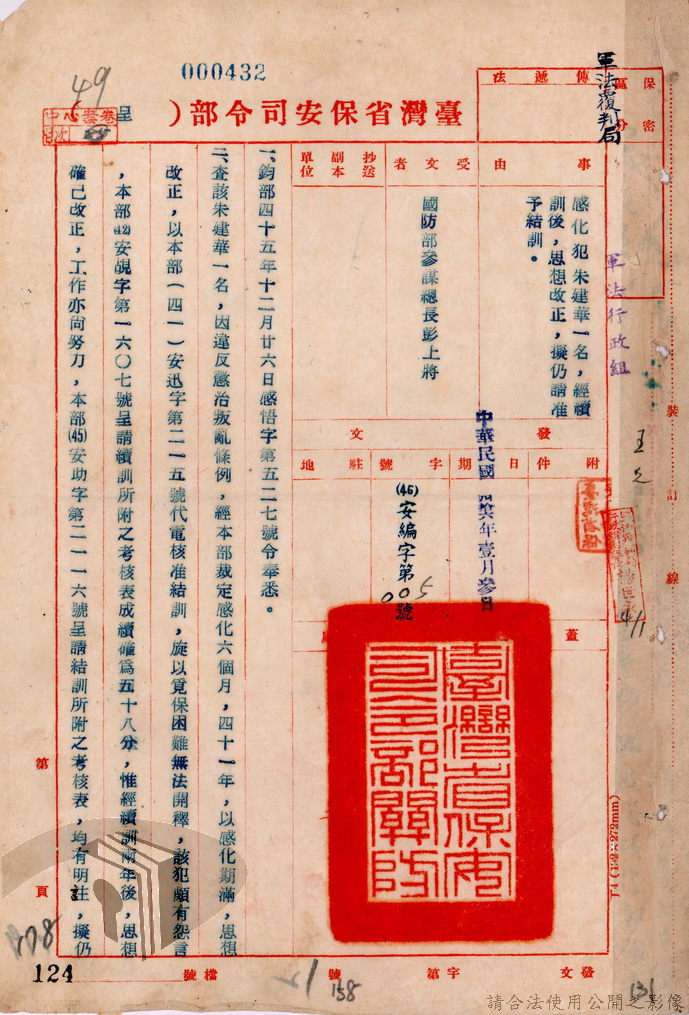 000432
49
臺灣省保安司令部（
呈
軍法覆判局
保密
區分
傳遞法
事由
感化犯朱建華一名，經續
訓後，思想改正，擬仍請准
予結訓。
軍法行政組
受文者
國防部參謀總長彭上將
抄送
副本
單位
發文
附件
日期
中華民國 肆拾陸年壹月參日
字號
(46)安編字第005號
駐地
蓋
臺灣省保安司令部關防
一、鈞部四十五年十二月廿六日感悟字第五二七號令奉悉。
二、查該朱建華一名，因違反懲治叛亂條例，經本部裁定感化六個月，四十一年，以感化期滿，思想
改正，以本部（四一）安迅字第二一五號代電核准結訓，旋以覓保困難無法開釋，該犯頗有怨言
，本部(42)安覘字第一六〇七號呈請續訓所附之考核表成績確為五十八分，惟經續訓兩年後，思想
確已改正，工作亦尚努力，本部(45)安助字第二一一六號呈請結訓所附之考核表，均有明註，擬仍
裝訂線
第 頁
178
124
檔號
發文 字第 號
158
131
請合法使用公開之影像